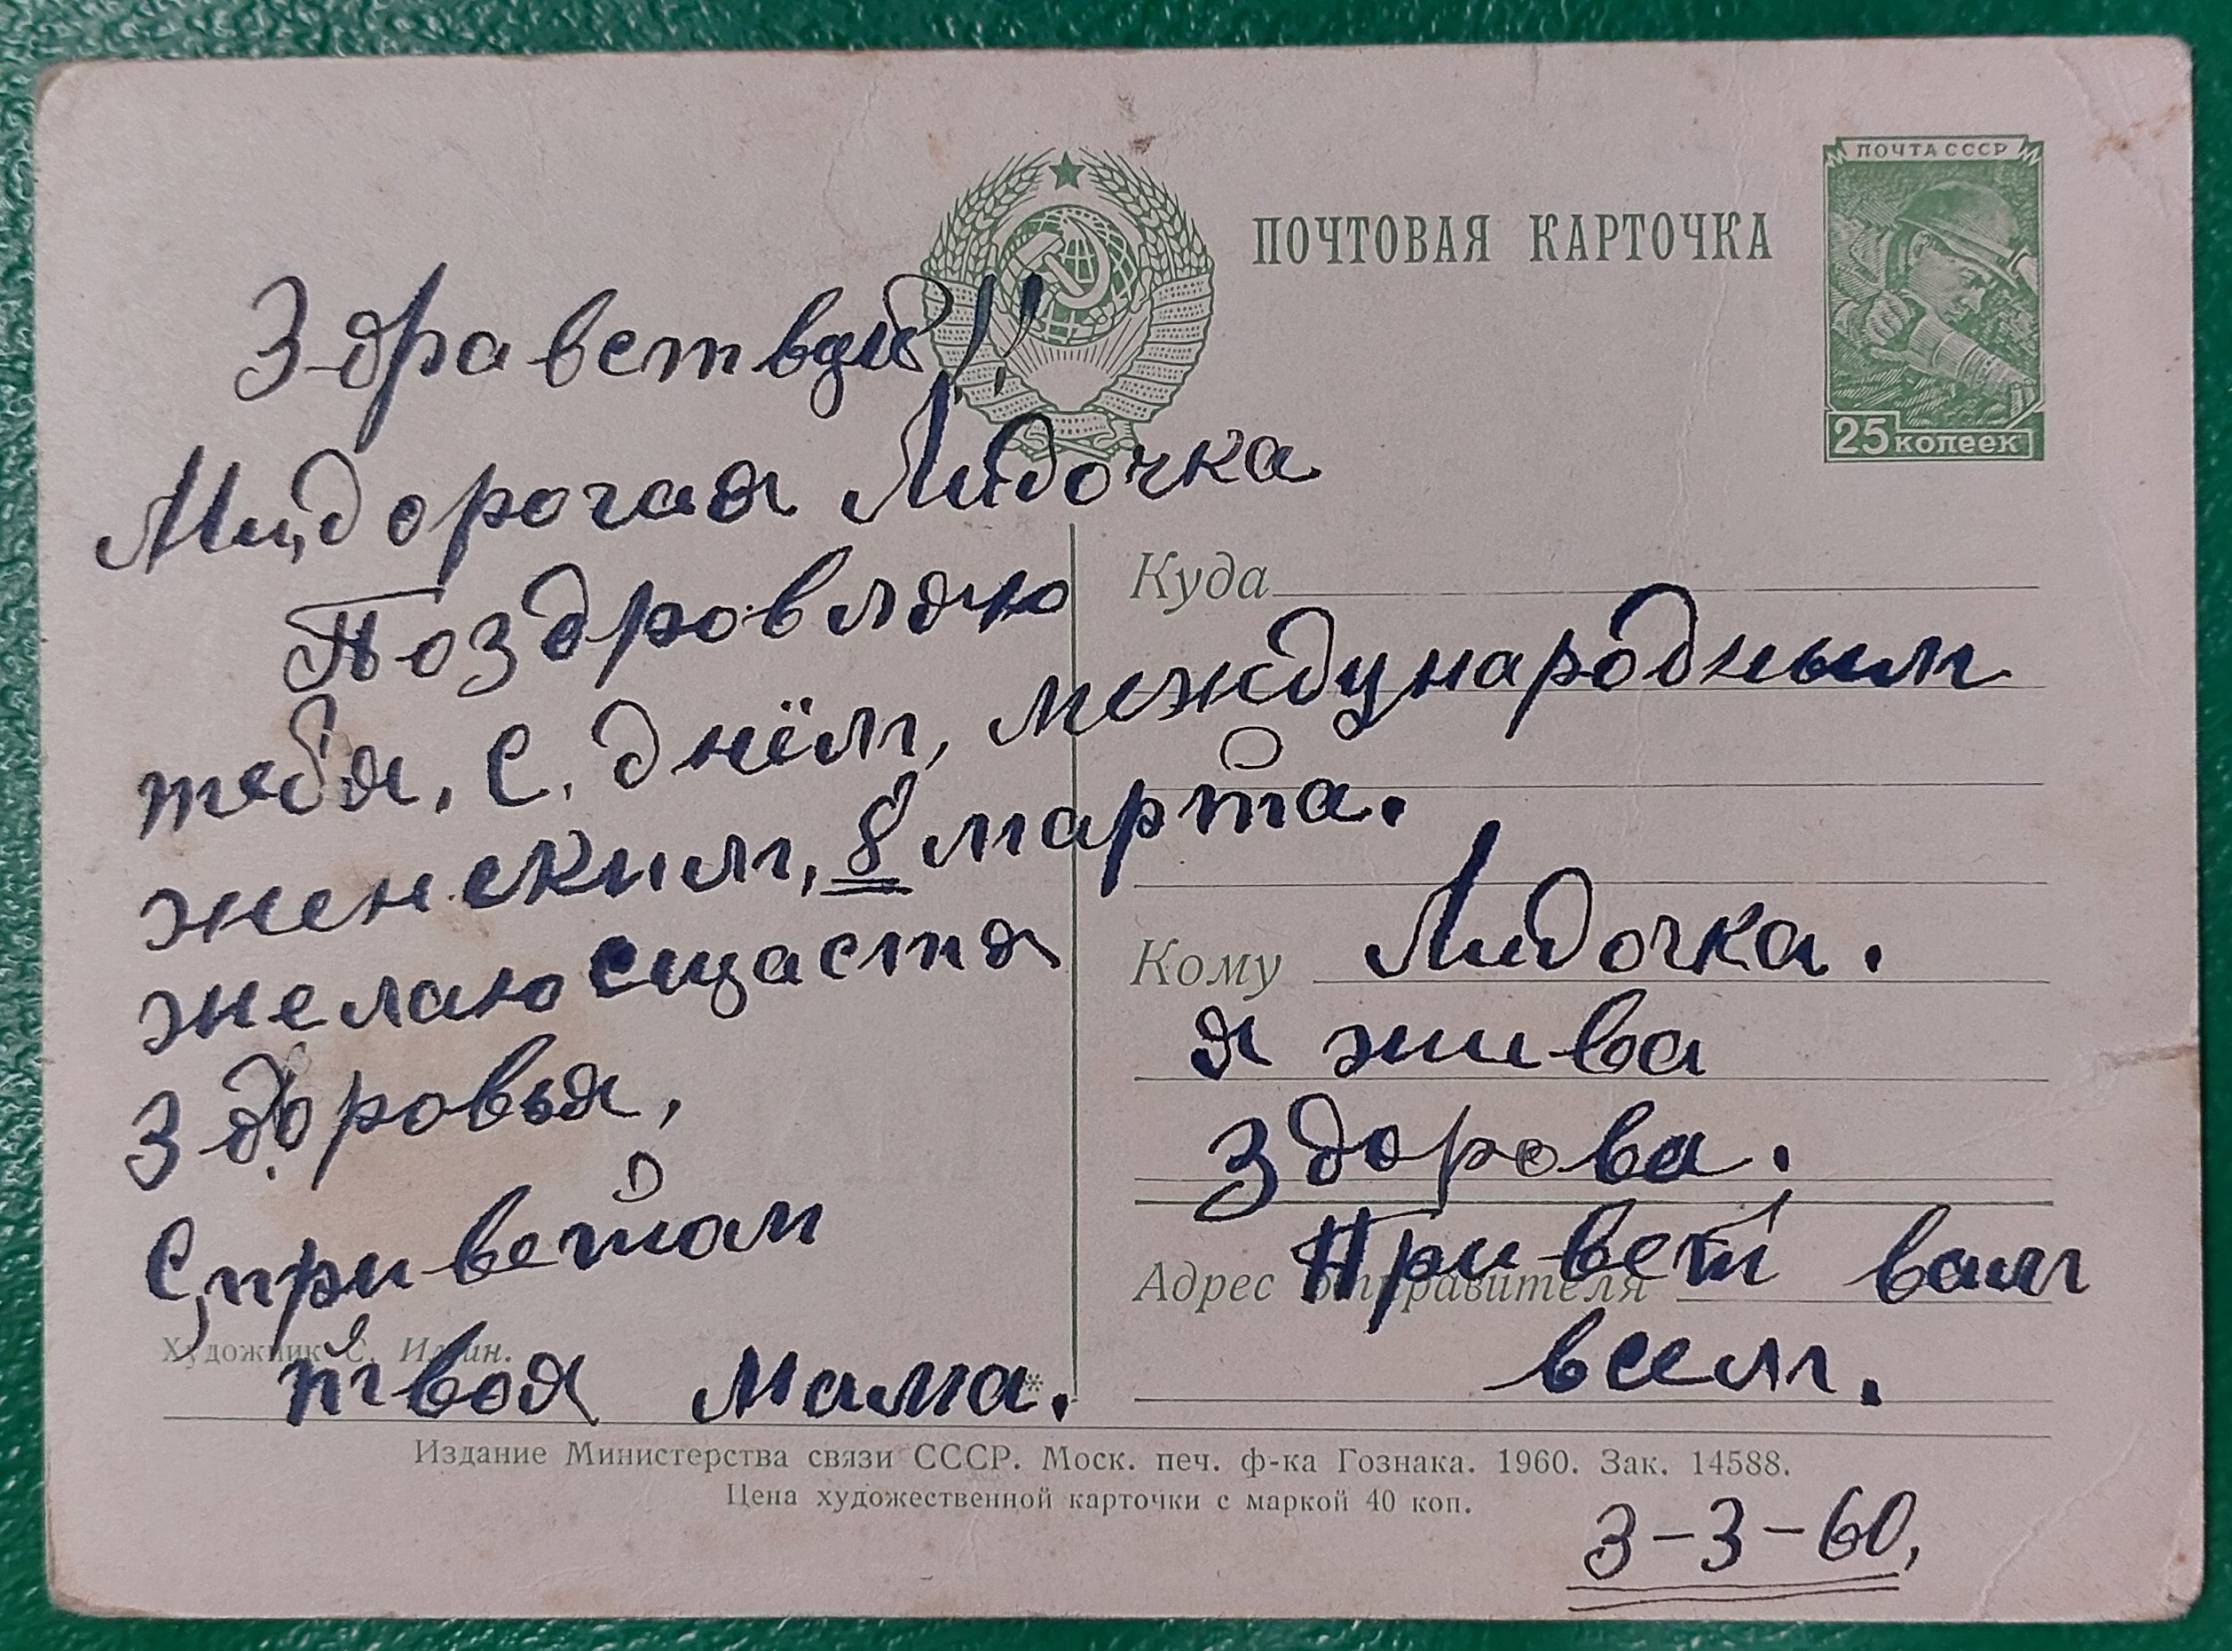 ПОЧТА СССР
ПОЧТОВАЯ КАРТОЧКА
25 копеек
Здраветвуй!!
дорогая Лидочка
Поздровляю
тебя, С, днём, международным
женским, 8 марта.
желаю сщастя
здоровья,
С, приветом
твоя мама.
Куда
Кому Лидочка.
я жива
здорова.
Привет вам
всем.
Адрес отправителя
Художник С. Ильин.
Издание Министерства связи СССР. Моск. печ. ф-ка Гознака. 1960. Зак. 14588.
Цена художественной карточки с маркой 40 коп.
3-3-60,